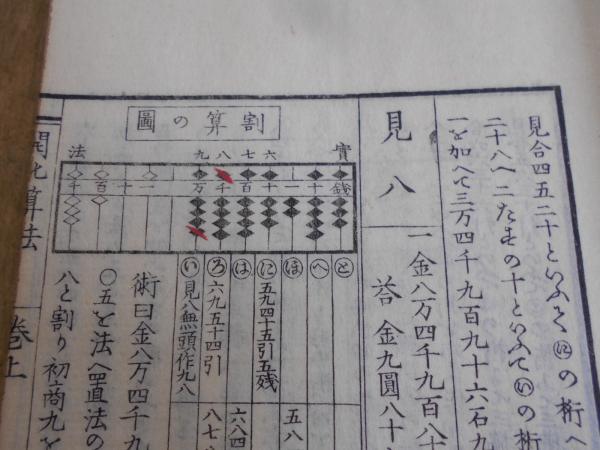 見合四五二十といふて㋥の桁へ
二十八へ二たすの十といふて㋑の桁
一を加へて三万四千九百九十六石九
見八
一金八万四千九百八十
答金九圓八十
割算の圖
實
六
七
八
九
法
銭
十
一
十
百
千
万
一
十
百
千
㋣
㋬
㋭
㋥
㋩
㋺
㋑
五八
五九四十五引五残
六八四
六九五十四引
八七
見八無頭作九八
術曰金八万四千九
〇五を法へ置直法の
八と割り初商九を
算法
巻上